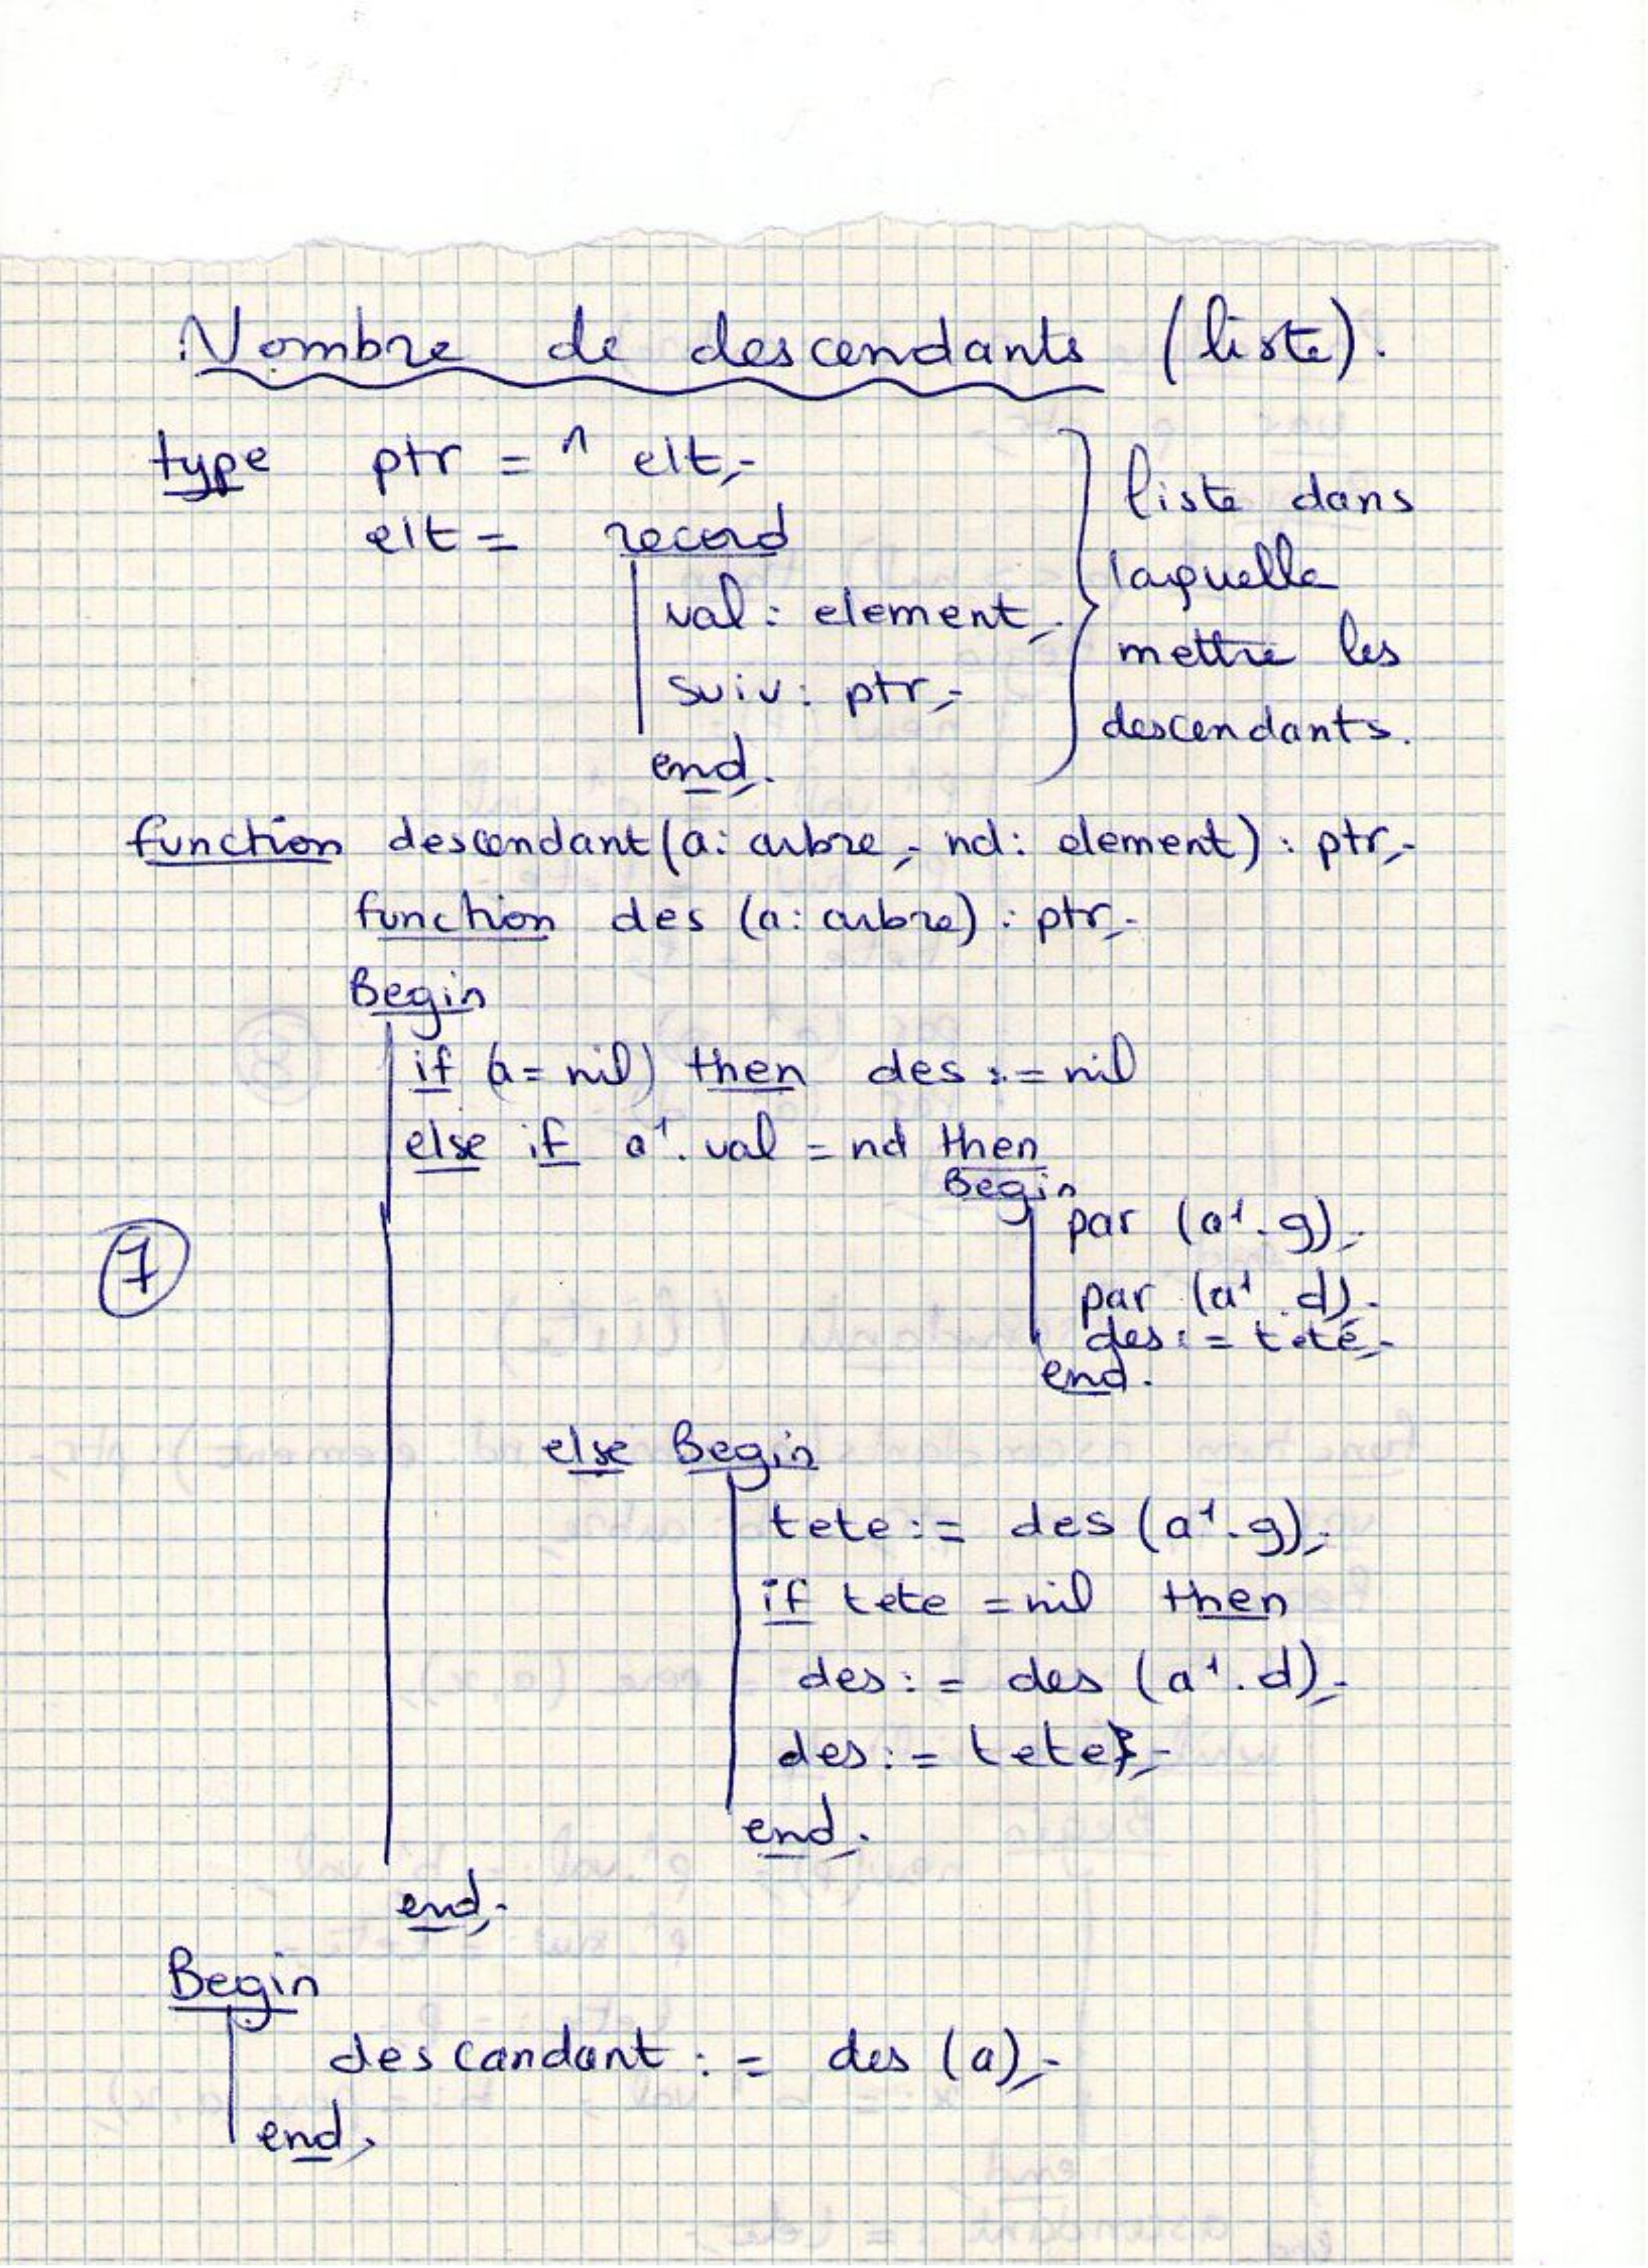 Nombre de descendants (liste).
type ptr = ^ elt;
elt = record
val: element;
suiv: ptr;
end;
liste dans
laquelle
mettre les
descendants.
function descendant (a: arbre; nd: element) : ptr;
function des (a: arbre) : ptr;
Begin
if (a = nil) then des := nil
else if a^. val = nd then
Begin
par (a^. g);
par (a^. d);
des := tete;
end.
7
else Begin
tete := des (a^. g);
if tete = nil then
des := des (a^. d);
des := tete;
end.
end;
Begin
descandant := des (a);
end;